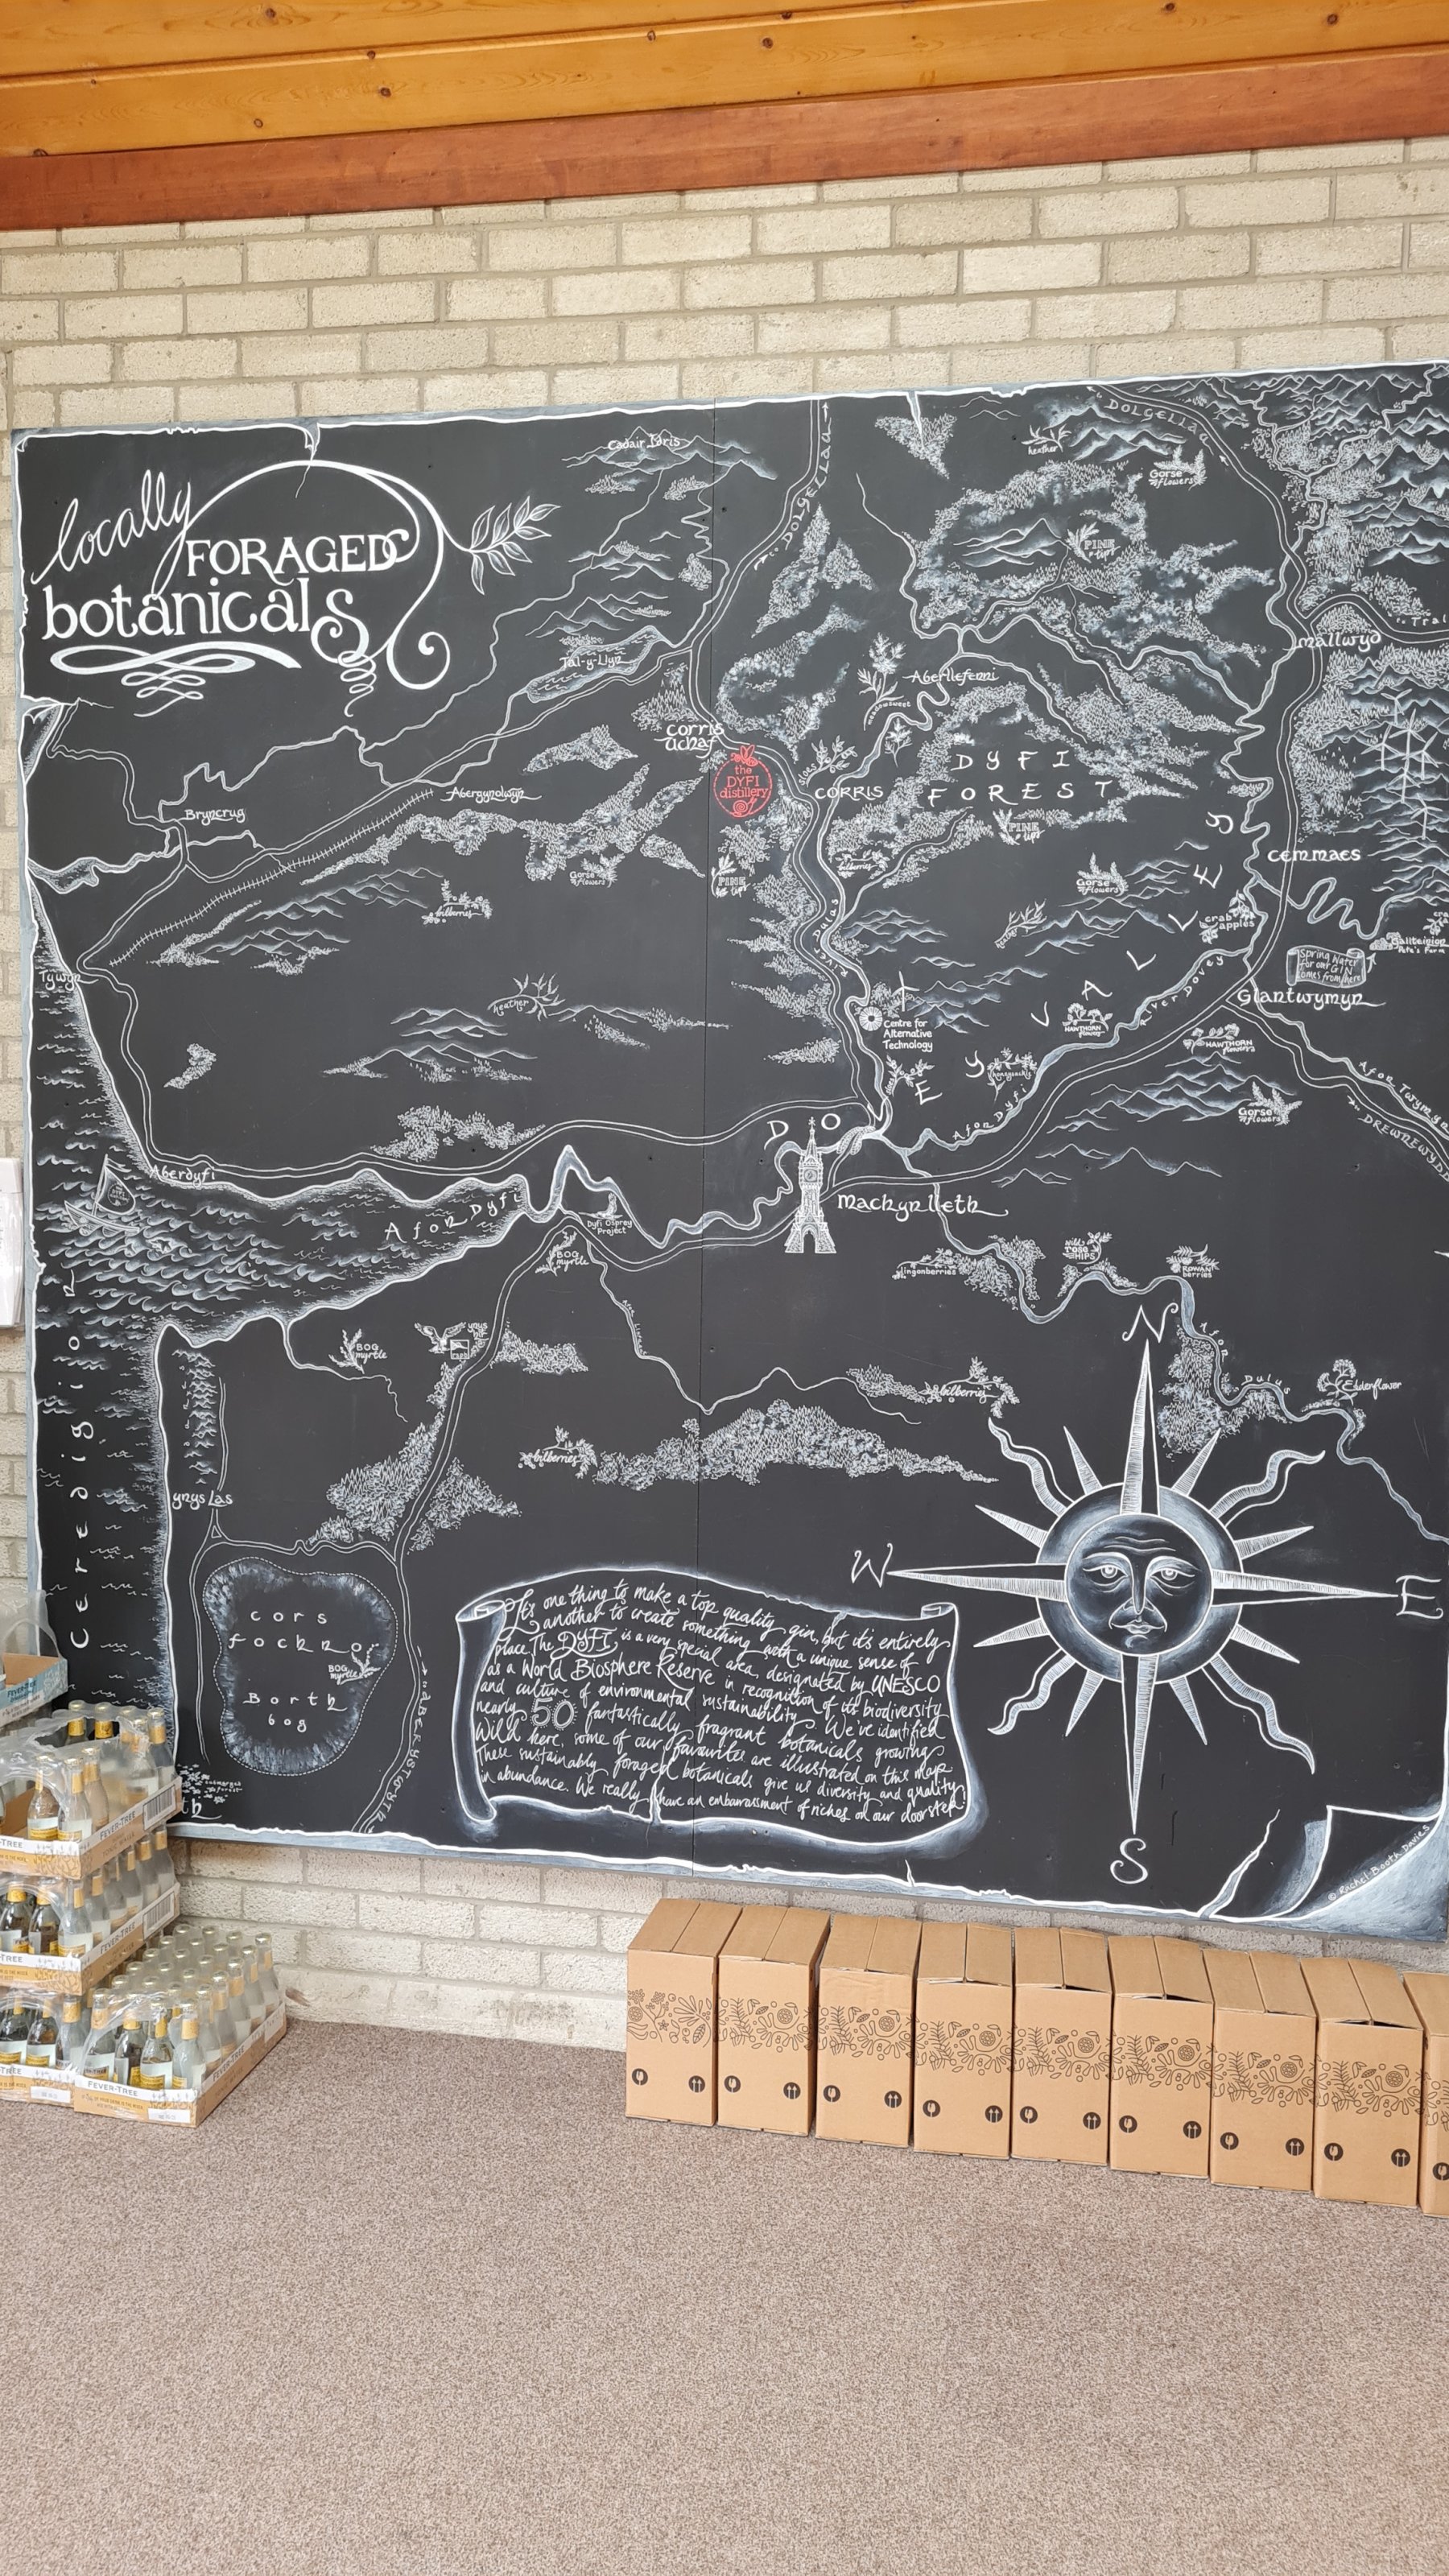 locally
FORAGED
botanicals
Cadair Idris
DOLGELLAU
DOLGELLAU
heather
Gorse
flowers
PINE
tips
mallwyd
Tal-y-Llyn
Aberllefenni
meadowsweet
corris
uchaf
the
DYFI
distillery
CORRIS
DYFI
FOREST
PINE
tips
Abergynolwyn
Bryncrug
cemmaes
Gorse
flowers
PINE
tips
bilberries
Gorse
flowers
bilberries
crab
apples
River Dulas
River Dovey
Spring Water
for our GIN
comes from here
Pete's Farm
Glantwymyn
Tywyn
heather
Centre for
Alternative
Technology
HAWTHORN
flowers
HAWTHORN
flowers
DOVEY VALLEY
Gorse
flowers
Afon Twymyn
DREWNEWYDD
Afon Dyfi
Aberdyfi
Afon Dyfi
Dyfi Osprey
Project
Machynlleth
BOG
myrtle
lingonberries
wild
rose
HIPS
ROWAN
berries
BOG
myrtle
ynys
Afon Dulas
Elderflower
bilberries
bilberries
Ceredigion
ynys Las
N
W
E
S
cors
fochno
BOG
myrtle
Borth
bog
ABERYSTWYTH
It's one thing to make a top quality gin, but it's entirely
another to create something with a unique sense of
place. The DYFI is a very special area, designated by UNESCO
as a World Biosphere Reserve in recognition of its biodiversity
and culture of environmental sustainability. We've identified
nearly 50 fantastically fragrant botanicals growing
Wild here, some of our favourites are illustrated on this map
These sustainably foraged botanicals give us diversity and quality
in abundance. We really have an embarrassment of riches on our doorstep!
© Rachel Booth Davies
FEVER-TREE
FEVER-TREE
FEVER-TREE
FEVER-TREE
FEVER-TREE